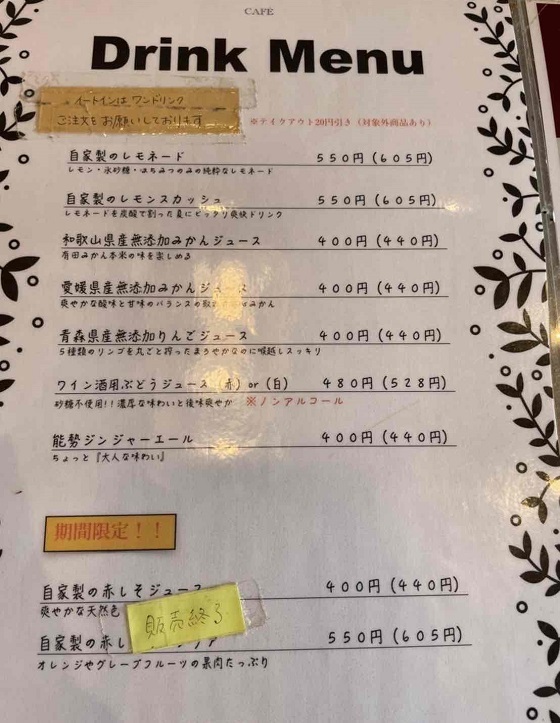 CAFE
Drink Menu
イートインは ワンドリンク
ご注文をお願いしております
※テイクアウト20円引き（対象外商品あり）
自家製のレモネード 550円（605円）
レモン・氷砂糖・はちみつのみの純粋なレモネード
自家製のレモンスカッシュ 550円（605円）
レモネードを炭酸で割った夏にピッタリ爽快ドリンク
和歌山県産無添加みかんジュース 400円（440円）
有田みかん本来の味を楽しめる
愛媛県産無添加みかんジュース 400円（440円）
爽やかな酸味と甘味のバランスの みかん
青森県産無添加りんごジュース 400円（440円）
5種類のリンゴを丸ごと搾ったまろやかなのに喉越しスッキリ
ワイン酒用ぶどうジュース（赤）or（白） 480円（528円）
砂糖不使用!!濃厚な味わいと後味爽やか ※ノンアルコール
能勢ジンジャーエール 400円（440円）
ちょっと『大人な味わい』
期間限定！！
自家製の赤しそジュース 400円（440円）
爽やかな天然色
販売終了
自家製の赤し 550円（605円）
オレンジやグレープフルーツの果肉たっぷり